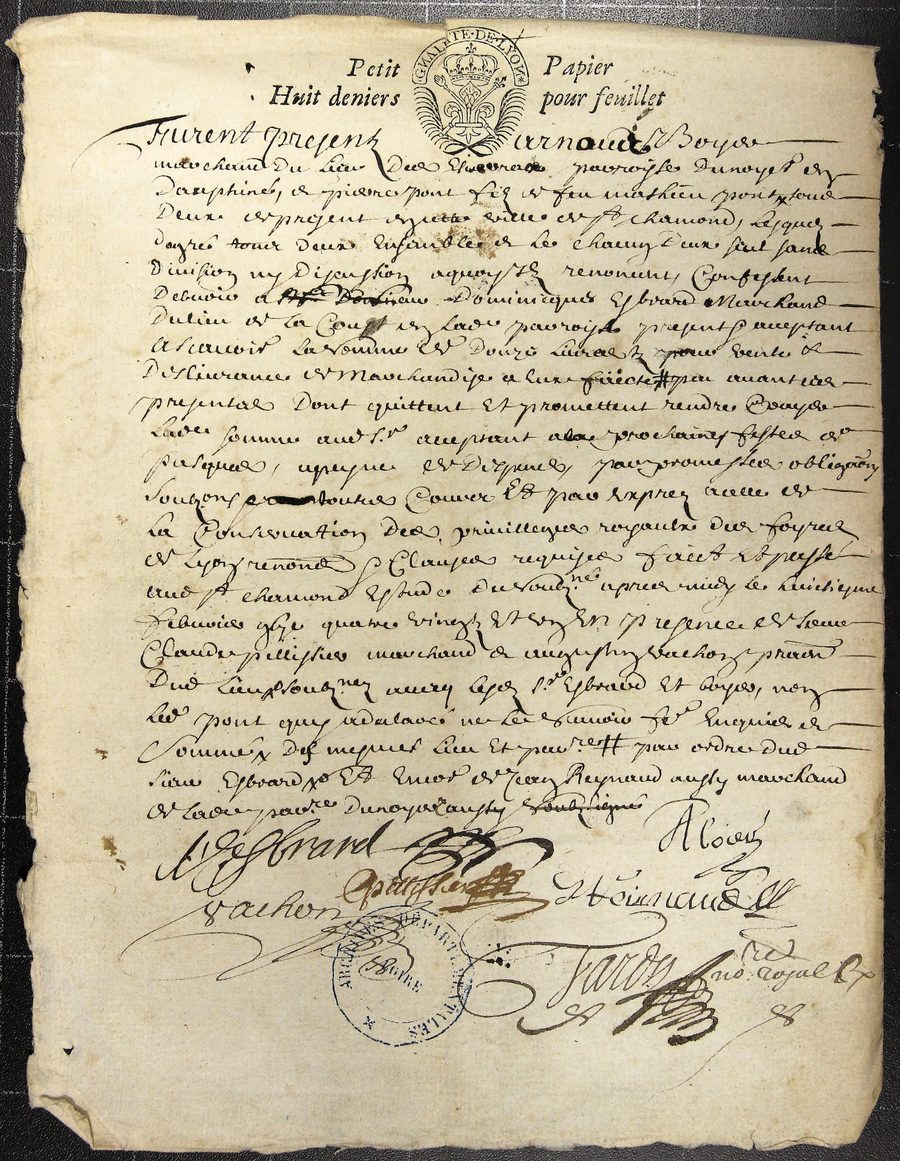 GNALITE·DE·LYON
Petit Papier
Huit deniers pour feuillet
Furent presentz arnaud Boyer
marchand du lieu des paroisse du noyer en
Dauphiné, et pierre pont filz de feu mathieu pont tous
Deux de present en ceste ville de st chamond, lesquelz
de grés tous deux Ensemble et le chacun deux seul sans
Division ny Discution a quoy ilz renoncent, Confessent
Debvoir a Dominicque Esbrard Marchand
Du lieu de la en lade parroisse present et aceptant
ascavoir la somme de Douze livres pour vente et
Deslivrance de Marchandise a Eux faicte par avant ces
presentes Dont quittent Et promettent rendre Et payer
lade somme aud sr aceptant aux prochaines festes de
pasques, a peyne de Despens, par promesses obligaōn
Et par exprez a celle de
La Conservation des privilleges royaulx des foyres
de Lyon renoncs Clauses requises faict Et passé
aud st chamond Estude du soubzné apres midy le huictiesme
febvrier gbjc quatre vingtz Et en presence de sieur
Claude pellissier marchand et augustin vachon pratn
Dud lieu soubznez avecq lesd srs Esbrard Et boyer, non
led pont qui a declairé ne le scavoir fe Enquis et
Sommé Du mesmes lieu Et parre par ordre dud
sieur Esbrard Et Encor de Jean Reynaud aussy marchand
de lade parre du noyer aussy soubzsigné
Esbrard
ABoier
pellissier
vachon
JReinaud
Tardy no re royal
ARCHIVES DÉPARTEMENTALES
LOIRE